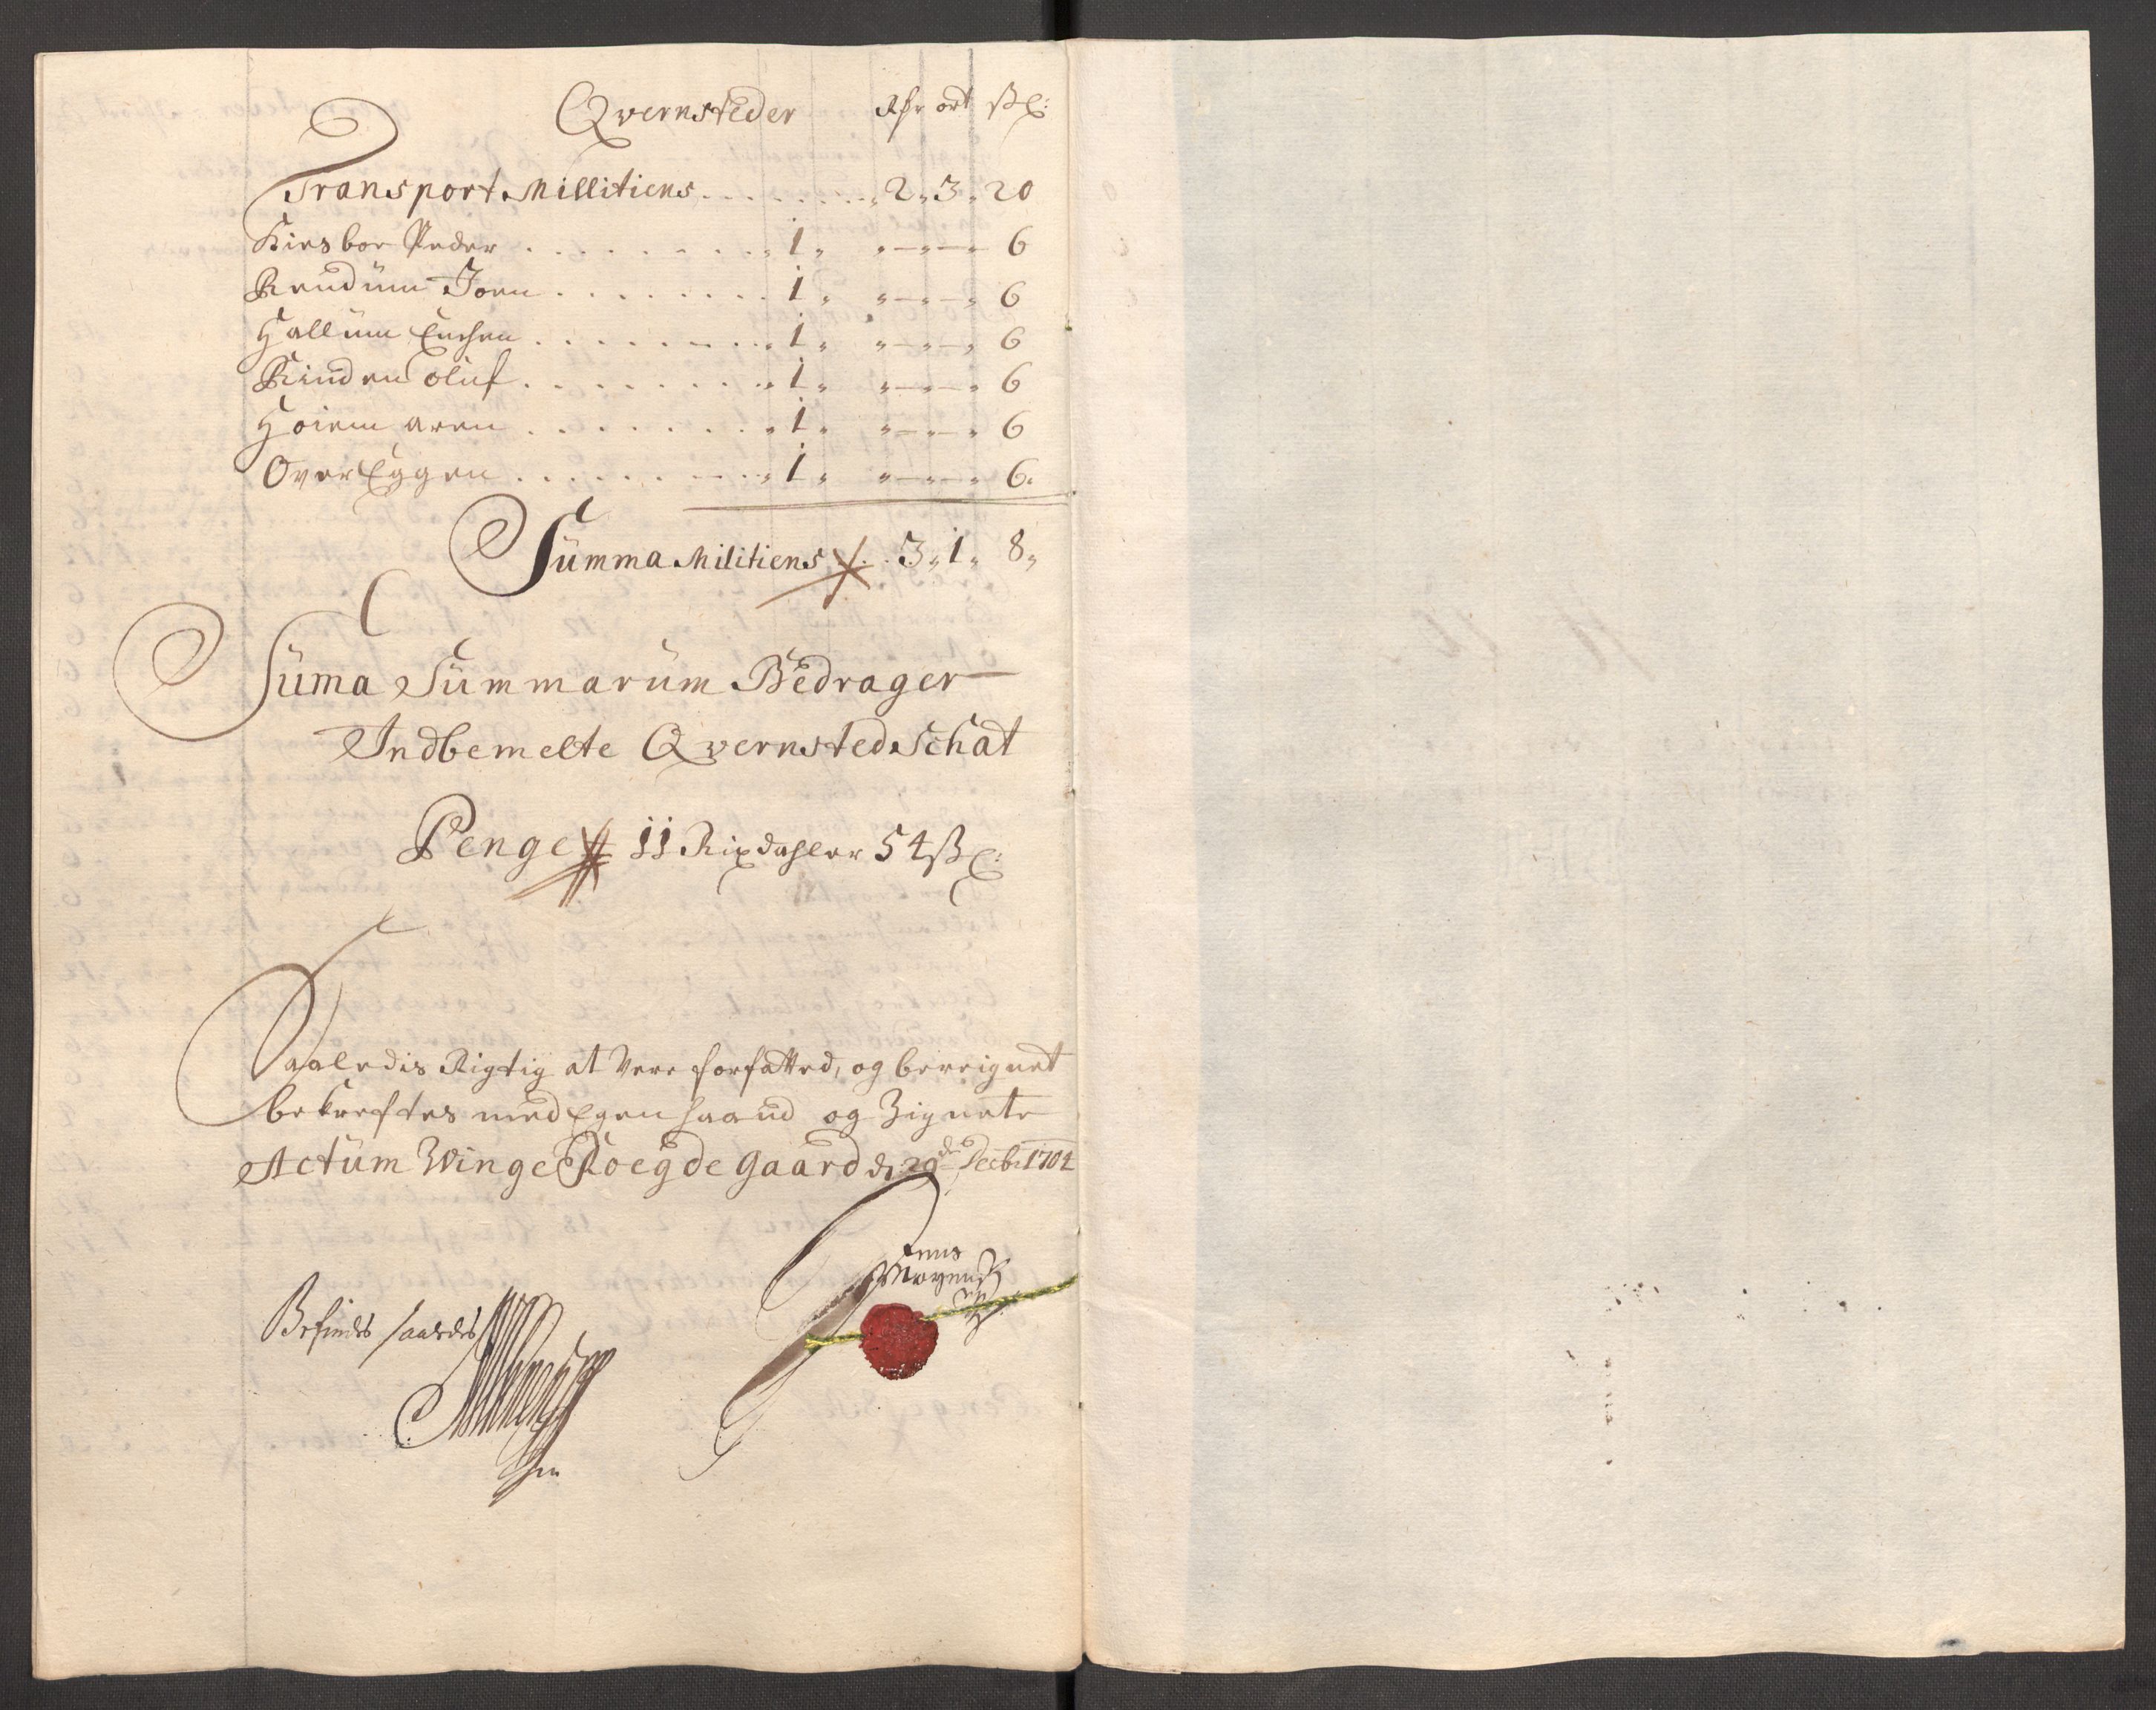 Qvernsteder Rdr ort ß
Transport Millitiens . . . . . . . . 2 " 3 " 20
Kiesboe Peder . . . . . . . . . 1 " " — " — " 6
Reudüm Joen . . . . . . . . 1 " " — " — " 6
Hallüm . . . . . . . . . 1 " " — " — " 6
Rinden olüf . . . . . . . . . 1 " " — " — " 6
Hoiem aren . . . . . . . . . 1 " " — " — " 6
Over Eggen . . . . . . . . . 1 " " — " — " 6.
Sümma Militiens . . 3 " 1 " 8 "
Süma Sümmarüm Bedrager
Indbemelte Qvernsted Schat
Penge 11 Rixdahler 54 ß
Saaledis Rigtig at Vere forfatted, og bereignet
bekreftes med Egen haand og Zignete
Actüm Winge Foegde gaard d: 29de Decbr 1704
Jens
Befindes saaledes